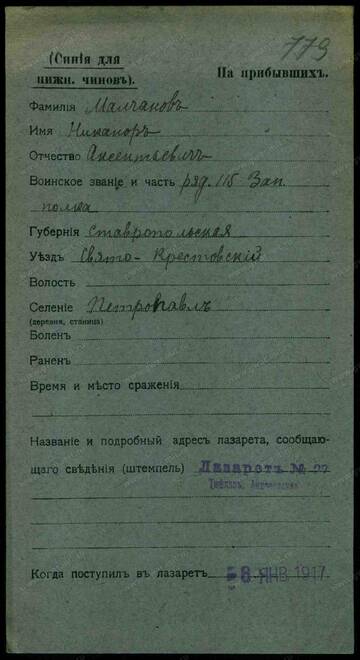 779
(Синія для
нижн. чиновъ).
На прибывшихъ.
Фамилія Малчановъ
Имя Никаноръ
Отчество Аксентьевичъ
Воинское званіе и часть ряд. 115 Зап.
полка
Губернія Ставропольская
Уѣздъ Свято-Крестовскій
Волость
Селеніе Петропавл
(деревня, станица)
Боленъ
Раненъ
Время и мѣсто сраженія
Названіе и подробный адресъ лазарета, сообщаю-
щаго свѣдѣнія (штемпель) Лазаретъ №
Тифлизъ,
Когда поступилъ въ лазаретъ 8 ЯНВ 1917